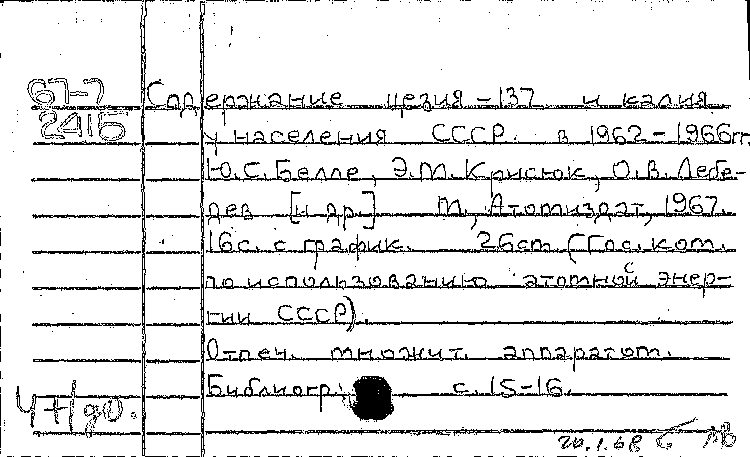 67-7 Содержание цезия-137 и калия
2415 у населения СССР. в 1962-1966гг.
Ю.С.Белле, Э.М.Крисюк, О.В.Лебе-
дев [и др.] М., Атомиздат, 1967.
16с. с график. 26см (Гос. ком.
по использованию атомной энер-
гии СССР).
Отпеч. множит. аппаратом.
Библиогр: с. 15-16.
20.1.68